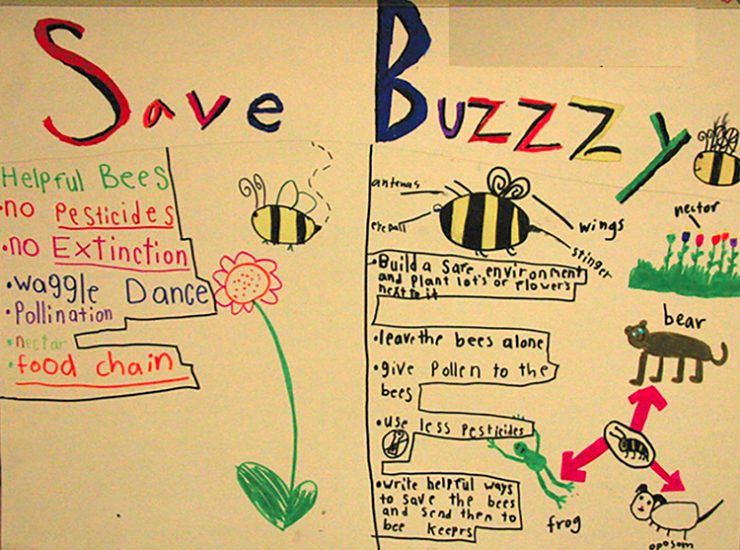 Save Buzzzy
Helpful Bees
•no Pesticides
•no Extinction
•waggle Dance
•Pollination
•nectar
•food chain
antenas
eyeball
wings
stinger
•Build a safe environment
and plant lot's of flowers
next to it
•leave the bees alone
•give Pollen to the
bees
•use less Pesticides
•write helpful ways
to save the bees
and send then to
bee keeprs
nector
bear
frog
oposom